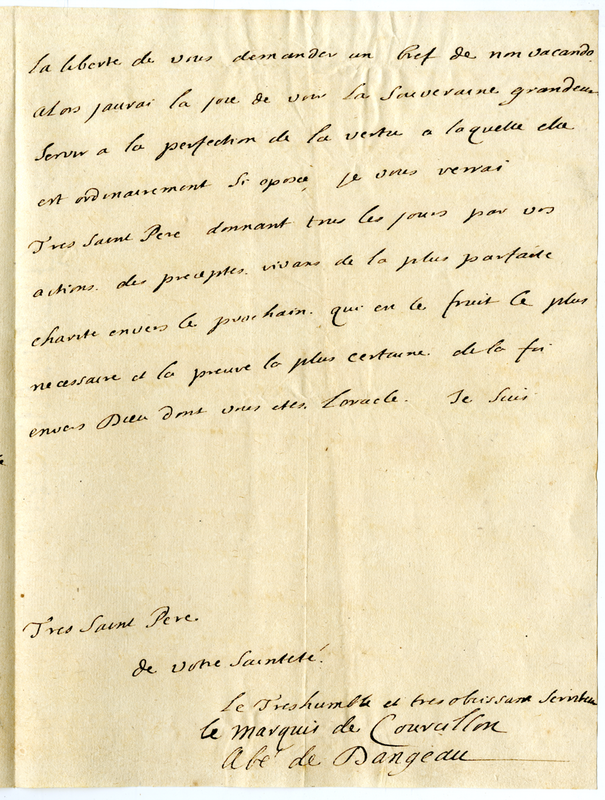 la liberte de vous demander un bref de non vacando
alors jaurai la joie de voir la souveraine grandeur
servir a la perfection de la vertu a laquelle elle
est ordinairement si oposée je vous verrai
Tres Saint Pere donnant tous les jours par vos
actions. des preceptes. vivans de la plus parfaite
charité envers le prochain. qui en le fruit le plus
necessaire et la preuve la plus certaine. de la foi
envers Dieu dont vous etes. Loracle. Je suis
Tres Saint Pere.
de votre Sainteté.
Le Tres humble et tres obeissant Serviteur
le marquis de Courcillon
Abé de Dangeau